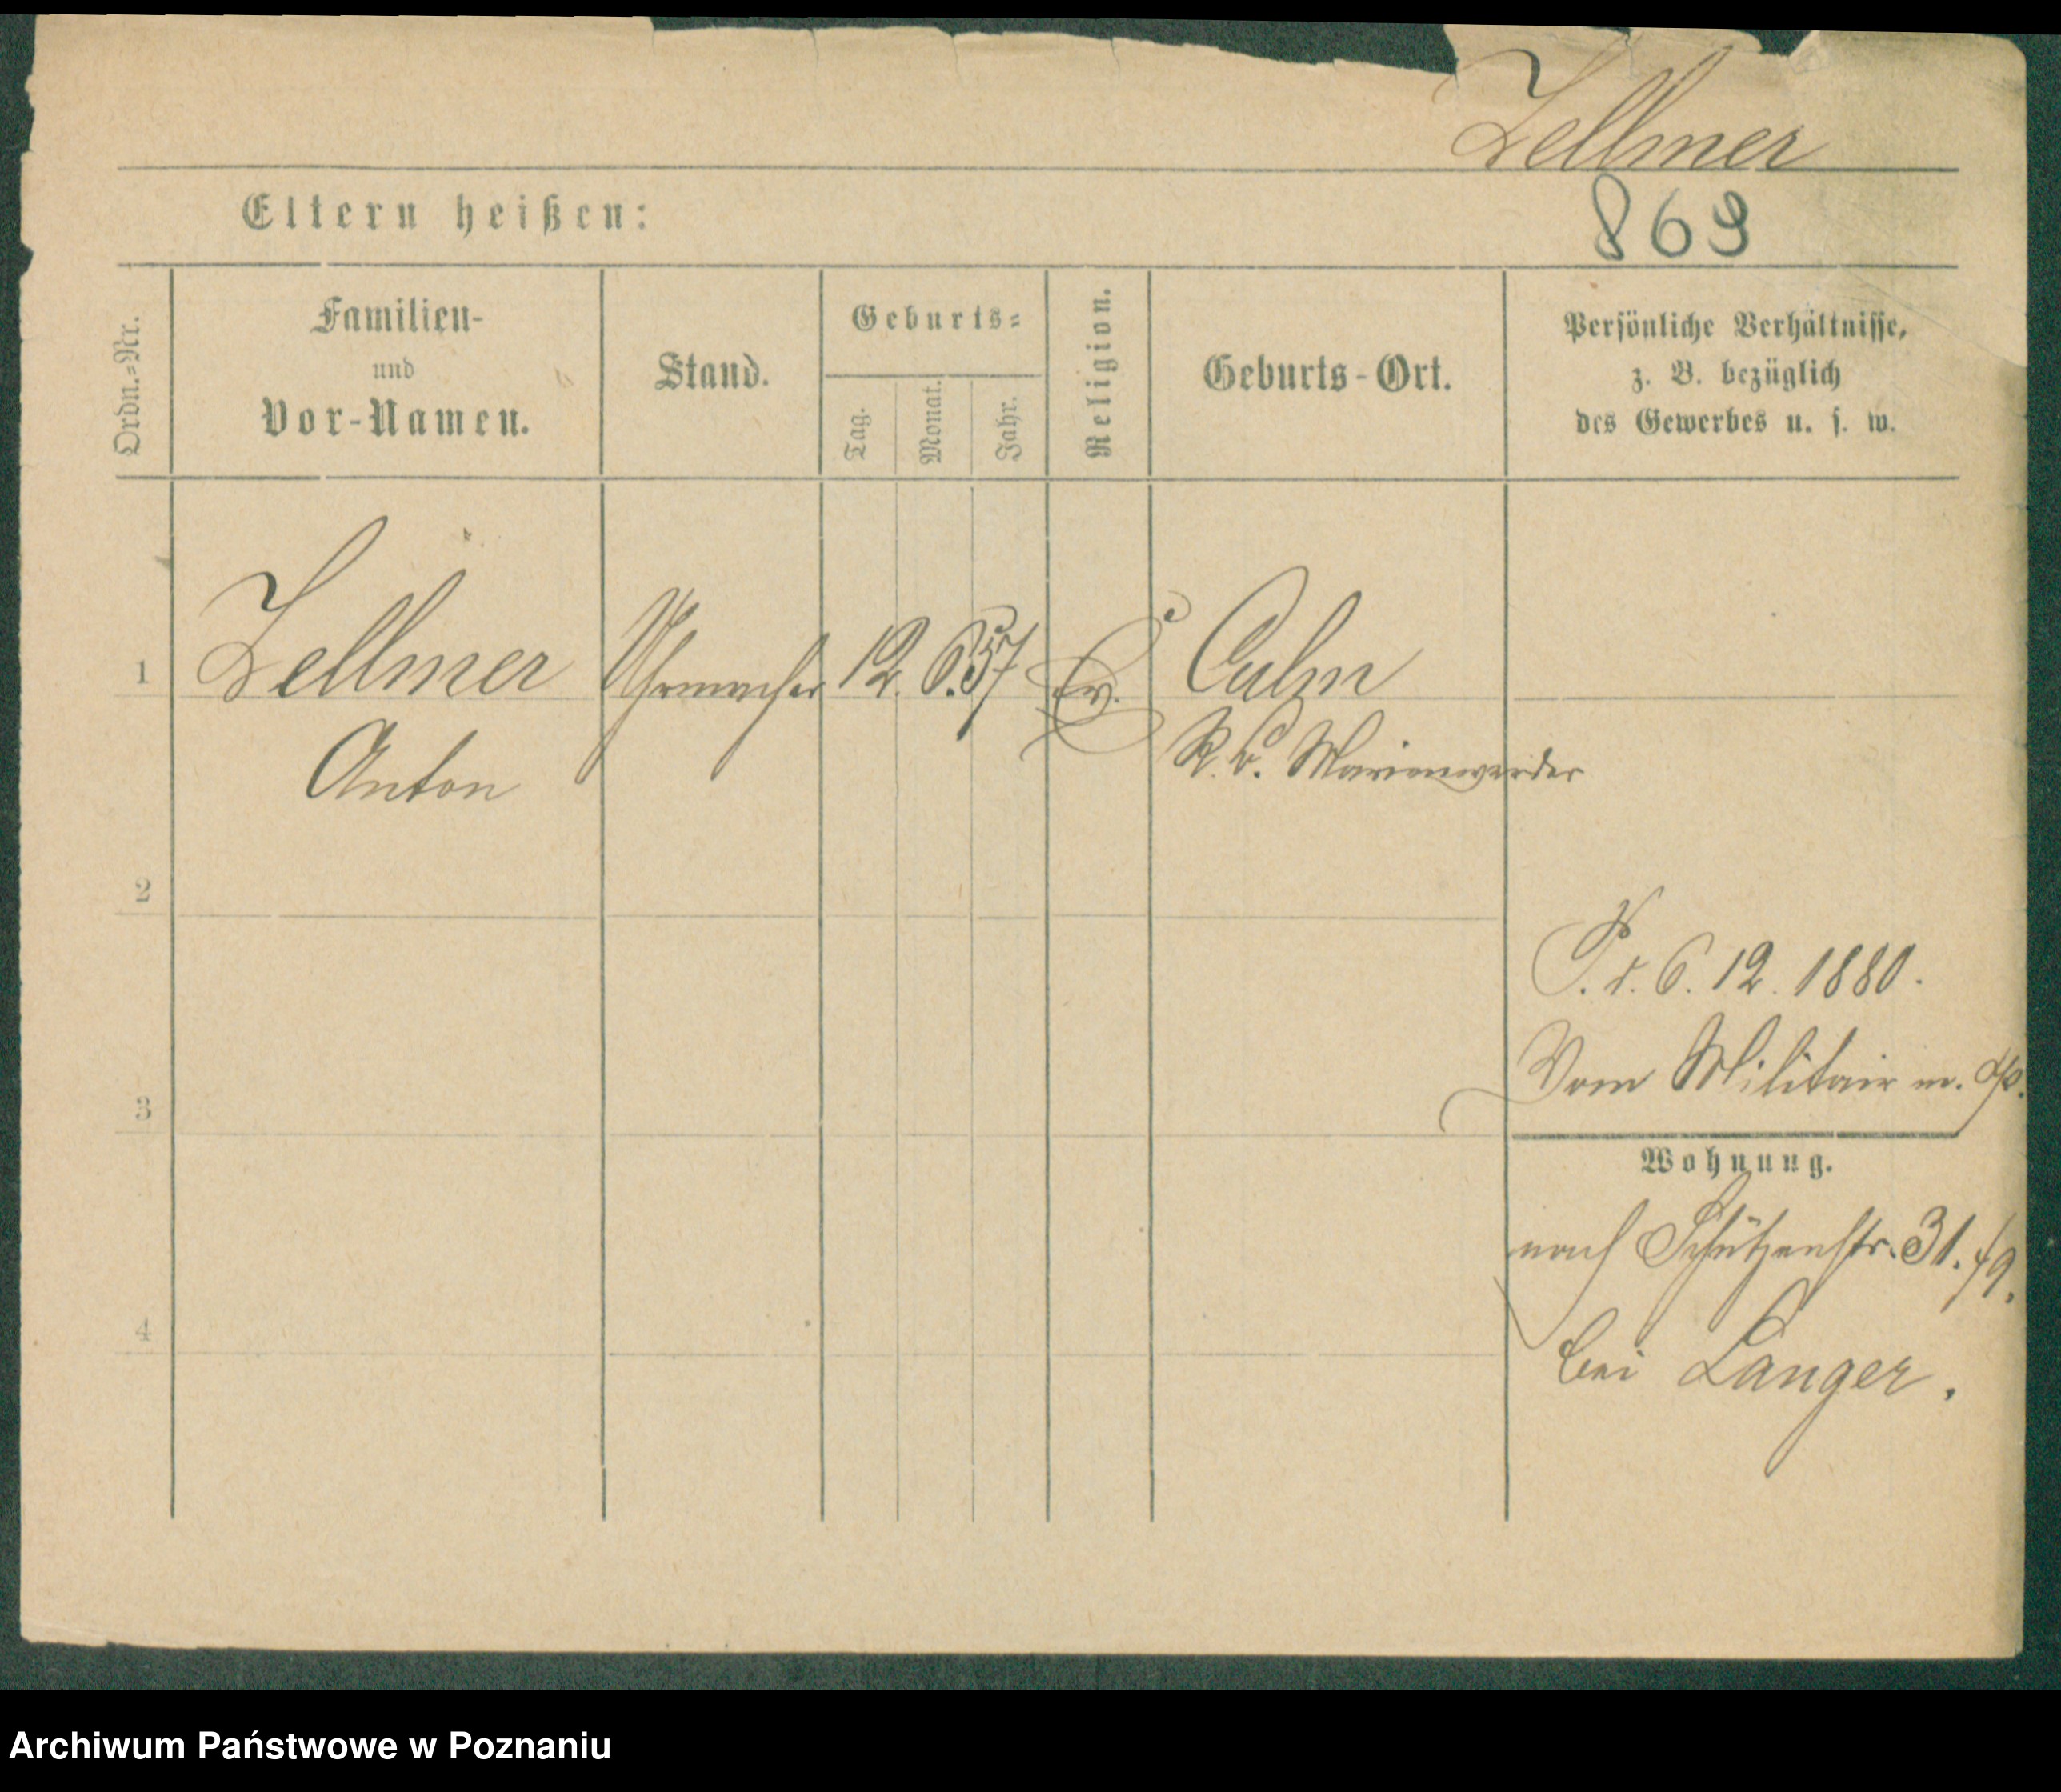 Zellmer
869
Eltern heißen:
Ordn.=Nr.
Familien-
und
Vor-Namen.
Stand.
Geburts=
Tag.
Monat.
Jahr.
Religion.
Geburts-Ort.
Persönliche Verhältnisse,
z. B. bezüglich
des Gewerbes u. s. w.
1 Zellmer Uhrmacher 12. 6. 57 Ev. Culm
Anton R. B. Marienwerder
2
P. d. 6. 12. 1880.
Vom Militair m.
3
Wohnung.
nach Schützenstr. 31.
4
bei Langer.
Archiwum Państwowe w Poznaniu